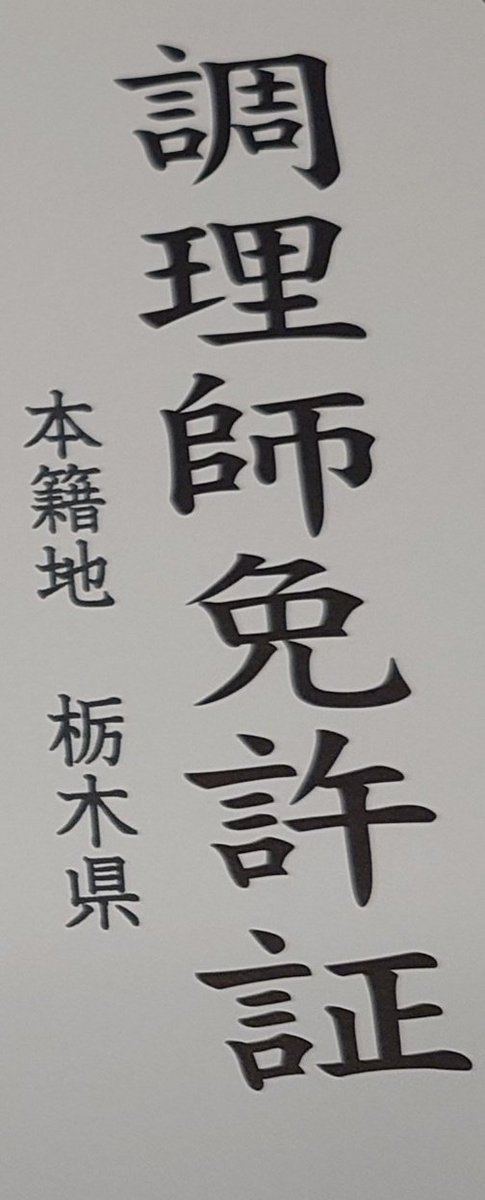 調理師免許証
本籍地 栃木県